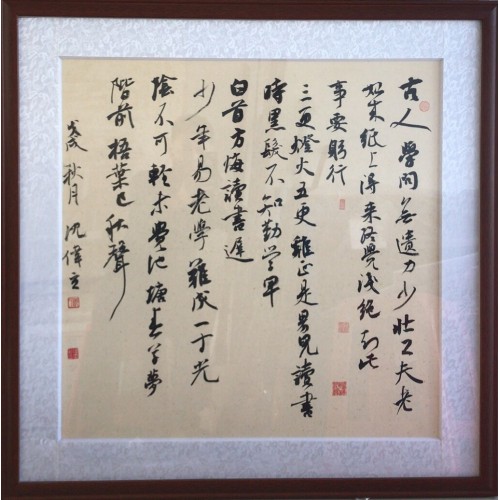 古人學問無遺力少壯工夫老
始成紙上得來終覺淺絕知此
事要躬行
三更燈火五更雞正是男兒讀書
時黑髮不知勤學早
白首方悔讀書遲
少年易老學難成一寸光
陰不可輕未覺池塘春草夢
階前梧葉已秋聲
戊戌秋月沈偉